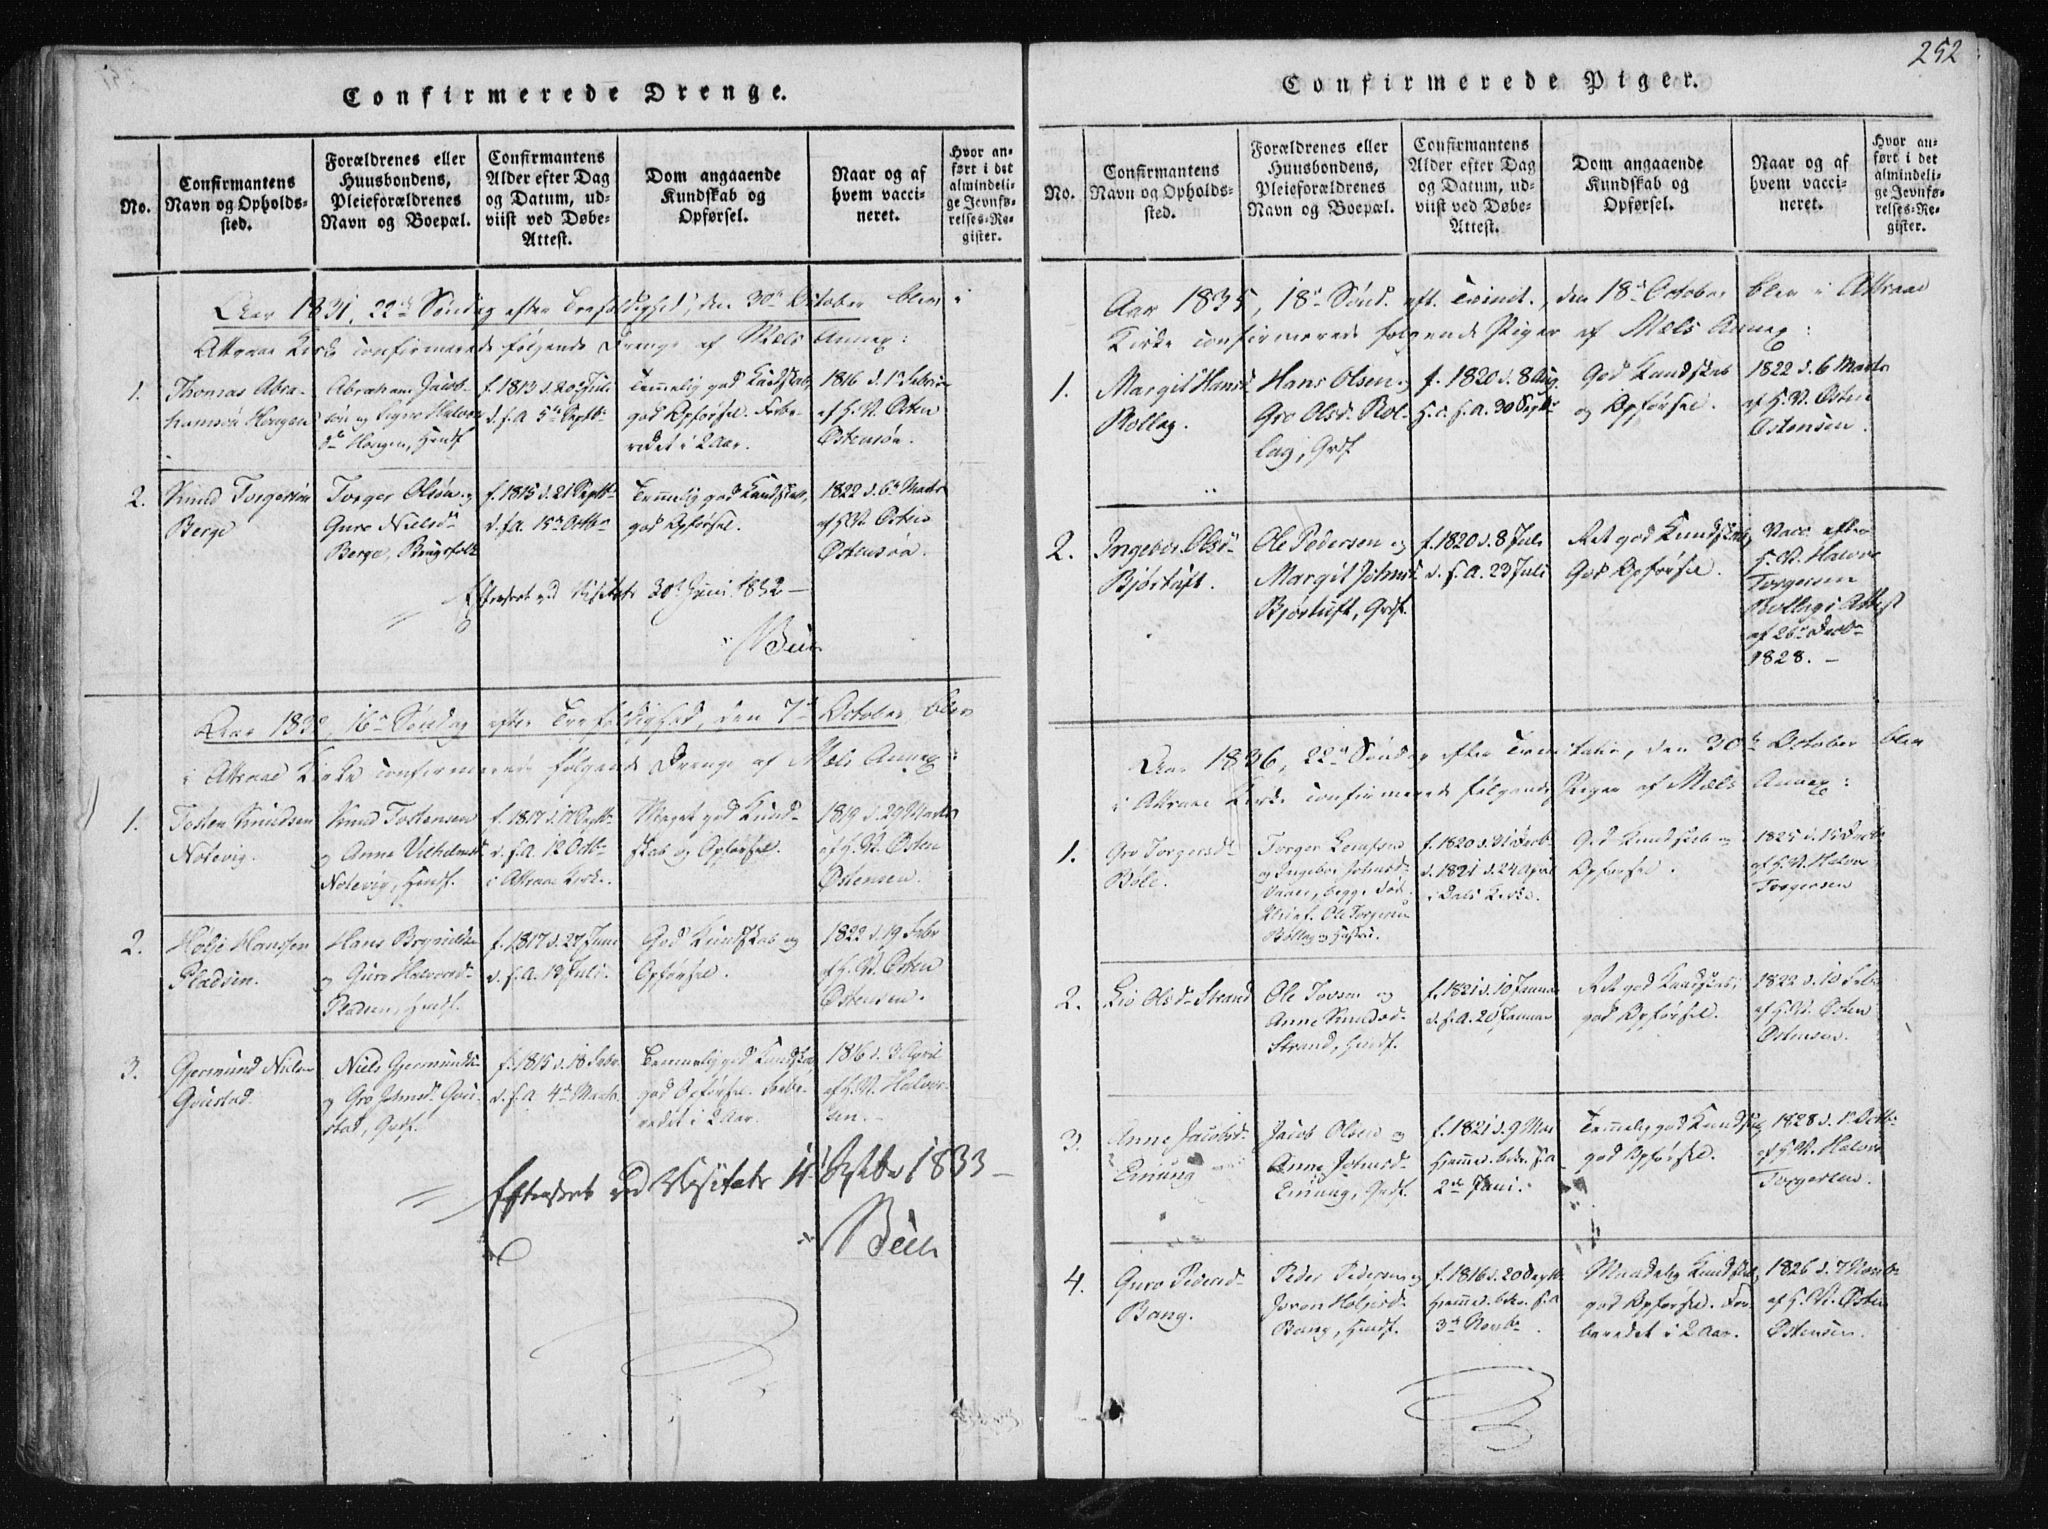 Confirmerede Drenge.
No.
Confirmantens
Navn og Opholds-
sted.
Forældrenes eller
Huusbondens,
Pleieforældrenes
Navn og Boepæl.
Confirmantens
Alder efter Dag
og Datum, ud-
viist ved Døbe-
Attest.
Dom angaaende
Kundskab og
Opførsel.
Naar og af
hvem vacci-
neret.
Hvor an-
ført i det
almindeli-
ge Jevnfø-
relses-Re-
gister.
Aar 1831, 22de Søndag efter Trefoldighed, den 30te October blev i
Attraae Kirke confirmerede følgende Drenge af Mæls Annex:
1.
Thomas Abra-
hamsøn Haugen
Abraham Jacob-
søn og Signe Halvors-
dr Haugen, Huusf.
f. 1813 d. 20de Juli
d. s. A. 5te Septbr
Temmelig god Kundskab,
god Opførsel. Forbe-
redet i 2 Aar.
1816 d. 1ste Febru
af H. N. Østen
Østensøn.
2.
Knud Torgersøn
Berge
Torger Olsøn og
Guro Nielsdr
Berge, Brugsfolk
f. 1815 d. 21 Septbr
d. s. A. 15de Octbr
Temmelig god Kundskab,
god Opførsel.
1822 d. 6te Marts
af H. N. Østen
Østensøn.
Efterseet ved Visitats 30te Juni 1832 —
Bech
Aar 1832, 16de Søndag efter Trefoldighed, den 7de October, blev
i Attraae Kirke confirmerede følgende Drenge af Mæls Annex:
1.
Tosten Knudsen
Notevig.
Knud Tostensen
og Anne Vilhelmsdr
Notevig, Huusf.
f. 1817 d. 17 Septbr
d. s. A. 12 Octbr
i Attraae Kirke.
Meget god Kund-
skab og Opførsel.
1819 d. 29 Marts
af H. N. Østen
Østensen.
2.
Hans Hanssen
Pladsen.
Hans Brynildsen
og Guro Halvorsdr
Pladsen, Huusf.
f. 1817 d. 27 Juni
d. s. A. 13 Juli.
God Kundskab og
Opførsel.
1822 d. 19 Febr
af H. N. Østen
Østensen.
3.
Gjermund Niels
Gøustad.
Niels Gjermunds
og Gro Johnsdr Gøu-
stad, Grdf.
f. 1815 d. 18 Febr.
d. s. A. 4de Marts.
Temmelig god Kundskab,
god Opførsel. Forbe-
redet i 2 Aar.
1816 d. 3 April
af H. N. Halvor-
sen.
Efterseet ved Visitats 11 Septbr 1833 —
Bech
252
Confirmerede Piger.
No.
Confirmantens
Navn og Opholds-
sted.
Forældrenes eller
Huusbondens,
Pleieforældrenes
Navn og Boepæl.
Confirmantens
Alder efter Dag
og Datum, ud-
viist ved Døbe-
Attest.
Dom angaaende
Kundskab og
Opførsel.
Naar og af
hvem vacci-
neret.
Hvor an-
ført i det
almindeli-
ge Jevnfø-
relses-Re-
gister.
Aar 1835, 18de Sønd. eft. Trinit., den 18de October blev i Attraae
Kirke confirmerede følgende Piger af Mæls Annex:
1.
Margit Hansdr
Rollag.
Hans Olsen og
Gro Olsdr Rol-
lag, Grdf.
f. 1820 d. 8 Aug.
H. d. s. A. 30 Septbr
God Kundskab
og Opførsel.
1822 d. 6 Marts
af H. N. Østen
Østensen.
2.
Ingebor Olsdr
Bjørtuft.
Ole Pedersen og
Margit Johnsdr
Bjørtuft, Grdf.
f. 1820 d. 8 Juli
d. s. A. 23 Juli
Ret god Kundskab,
God Opførsel.
Vacc. efter
H. N. Halvor
Torgersen
Bøllags Attest
af 26de Decbr
1828. —
Aar 1836, 22de Søndag efter Trinitatis, den 30te October blev
i Attraae Kirke confirmerede følgende Piger af Mæls Annex:
1.
Gro Torgersdr
Bøle.
Torger
og Ingebor Johnsdr
begge død.
Ole Torgersen
f. 1820 d. 31 Decb.
d. 1821 d. 24 April
i Dals Kirke.
God Kundskab og
Opførsel.
1825 d. 15
af H. N. Halvor
Torgersen
2.
Liv Olsdr Strand
Ole Tovsen og
Anne Knudsdr
Strand, Huusf.
f. 1821 d. 10 Januar
d. s. A. 20 Januar
Ret god Kundskab,
god Opførsel.
1822 d. 10 Febr
af H. N. Østen
Østensen.
3.
Anne Jacobsdr
Einung
Jacob Olsen og
Anne Johnsdr
Einung, Grdf.
f. 1821 d. 9 Mai
Hjemmed. bekr. s. A.
2de Juni.
Temmelig god Kundskab,
god Opførsel.
1828 d. 1ste Octbr
af H. N. Halvor
Torgersen.
4.
Guro Pedersdr
Bang.
Peder Pedersen og
Joran Halvorsdr
Bang, Huusf.
f. 1816 d. 20 Septbr
Hjemmed. bekr. s. A.
3de Novbr
Maadelig Kundskab,
god Opførsel. For-
beredet i 2 Aar.
1826 d. 7 Novbr
af H. N. Østen
Østensen.